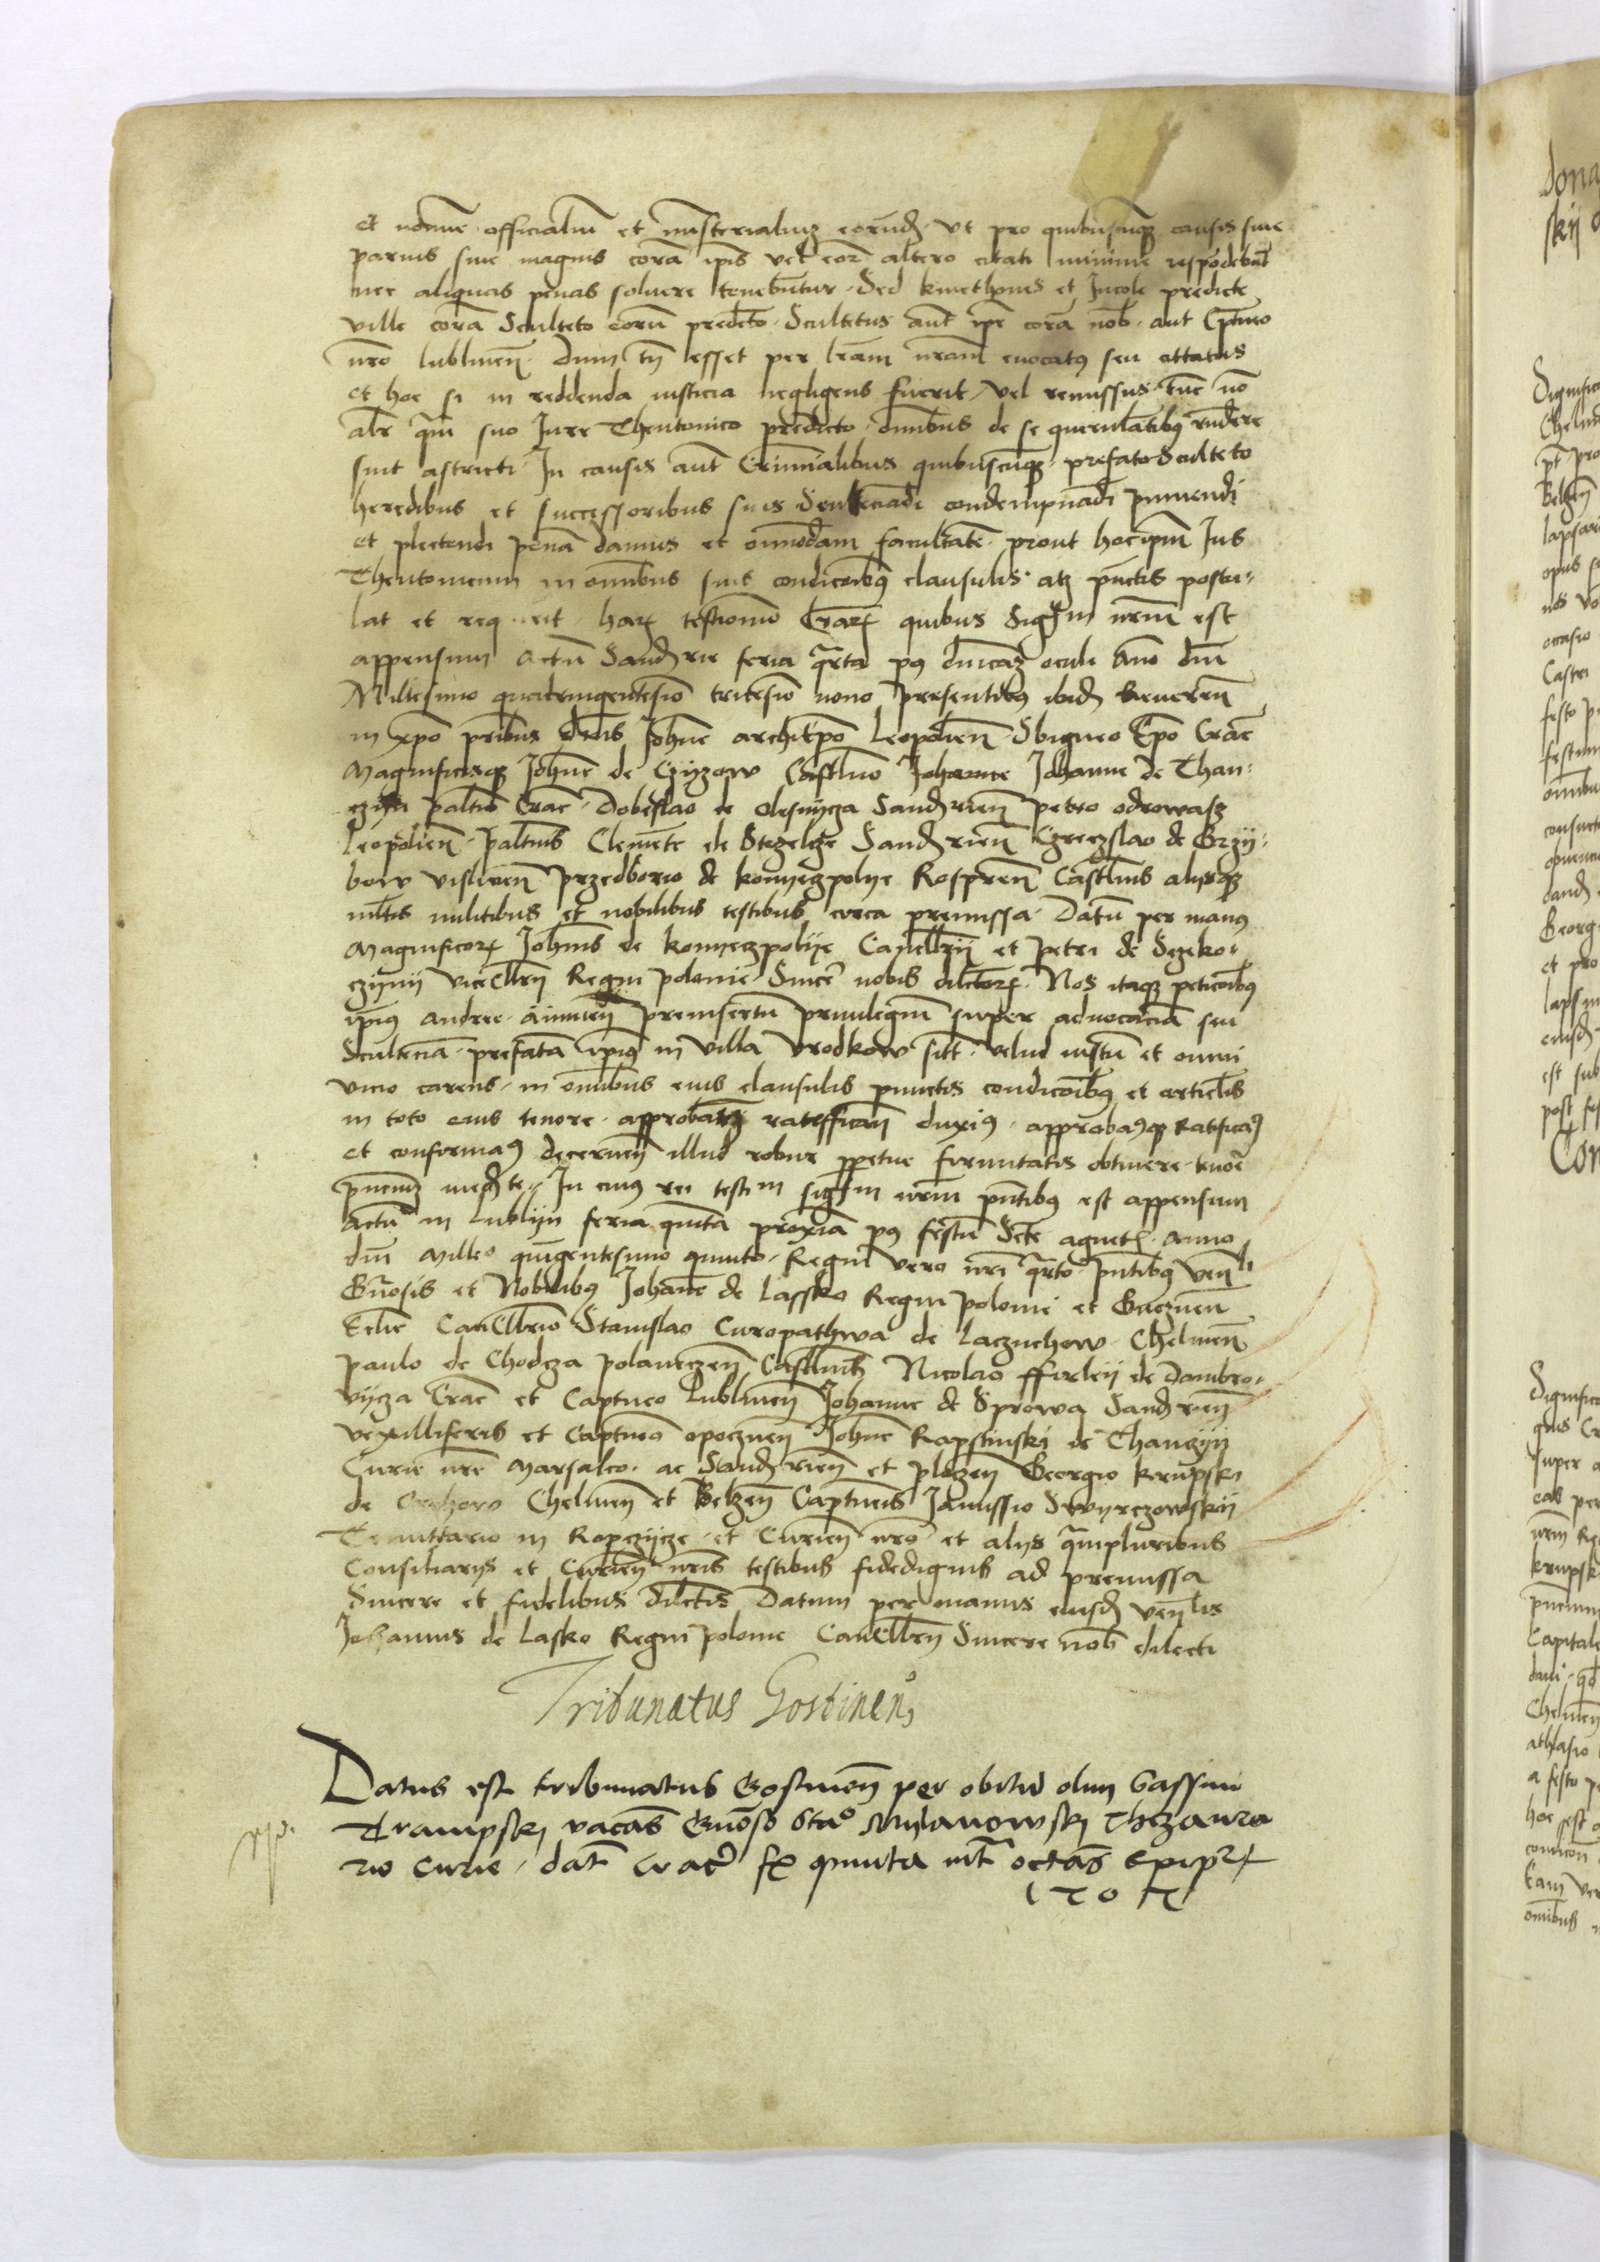 et nomine officialiu et ministerialiuz eorund. ut pro quibuscuqz causis siue
paruis siue magnis cora ipis vel eor altero citati minime respodebut
nec aliquas penas soluere tenebuntur. Sed kmethones et Incole predicte
ville cora Sculteto eoru predcto. Scultetus aut ipe cora nob. aut Cptneo
nro lublinen. dum tn esset per lram nram euocatus seu cittatus
et hoc si in reddenda iusticia negligens fuerit, vel remissus. tuc no
alr qm suo Jure Theutonico predicto. omnibus de se querulatibus rndere
sint astricti. In causis aut Criminalibus quibuscuqz. prefato Sculteto
heredibus et successoribus suis Sentenciadi condempnadi puniendi
et plectendi pena damus et omnodam facultate. prout hoc ipm Jus
Theutonicum in omnibus suis condicoibus clausulis. atqz punctis postu-
lat et requirit. har testimonio lrar quibus Sigillum nrum est
appensum Actu Sandomirie feria qrta post dnicaz oculi Anno dni
Millesimo quadringentesimo tricesimo nono presentibus ibid Reueren
in xpo pribus dnis Johne archiepo Leopolien Sbigneo Epo Crac
Magnificisqz Johne de Czyzow Castllno Johanne Johanne de Than-
czyn paltio Crac. Dobeslao de Olesnycza Sandomirien petro odrowasz
Leopolien. paltinis Clemente de Stregelcze Sandomirien Creczslao de Brzy-
bow Vislicien Przedborio de konyeczpolye Rospiren Castllnis alysqz
mltis militibus et nobilibus testibus circa premissa. Datu per manus
Magnificor Johnis de konyeczpolye Cancellrij et petri de Sczeko-
czyny vicecllrij Regni polonie. Sincere nobis dilctor. Nos itaqz peticoibus
ipius andree. annuen preinsertu priuilegiu super aduocacia seu
Scultecia. prefata ipius in villa Vrodkow sitt. velud iustu et omni
vicio carens. in omnibus eius clausulis punctis condicoibus et articlis
in toto eius tenore. approbanduz ratifficandu duximus. approbamusqz Ratificam
et confirmamus decernen illud robur ppetue firmitatis obtinere. tenore
pntiuz mediante. In cuius rei testim sigillum nrum pntibus est appensum
Actu in Lublyn feria quinta proxia post festu Scte agnetis. anno
dni Milleo quingentesimo quinto. Regni vero nri qrto. pntibus Venli
Gnosis et Nobilibus Johanne de Lassko Regni polonie et Gneznen
Eclie Cancellrio Stanislao Curopathwa de Laczuchow. Chelmen
Paulo de Chodcza polaneczen Castllnis Nicolao ffirley de Dambro-
vycza Crac et Captneo Lublinen Johanne de Sprowa Sandomirien
vexilliferis et Captneo opocznen Johne Rapstinski de Thanczyn
Curie nre Marsalco. ac Sandomirien et ploczen Georgio krupski
de Orchow Chelmen et Belzen Captneis Janussio Swyrczowskij
Tenuttario in Ropczycze. et Curien nro et alijs qmpluribus
Consiliarijs et Curien nris testibus fidedignis ad premissa
Sincere et fidelibus dilctis Datum per manus eiusd venlis
Johannis de Lasko Regni polonie Cancellrij Sincere nob dilecti
Tribunatus Gostinens
Datus est tribunatus Gostinen per obitu olim Gassini
Trampski vacas Gnoso Sta Mylanowski Thezaura
rio Curie. dat Crac fr quinta infra octas Epiphie
1505